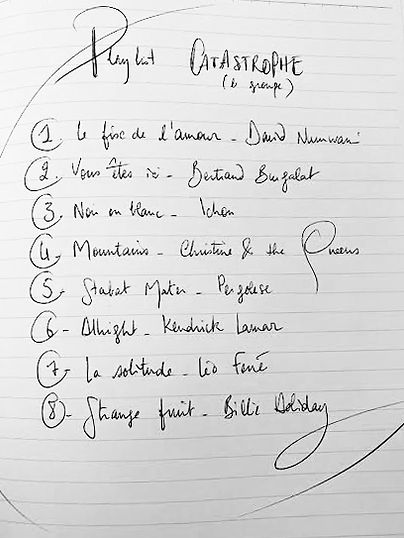 Playlist CATASTROPHE
(le groupe)
1. Le fisc de l'amour - David Numwami
2. Vous êtes ici - Bertrand Burgalat
3. Noir ou blanc - Ichon
4. Mountains - Christine & the Queens
5. Stabat Mater - Pergolese
6 - Alright - Kendrick Lamar
7 - La solitude - Léo Ferré
8 - Strange fruit - Billie Holiday